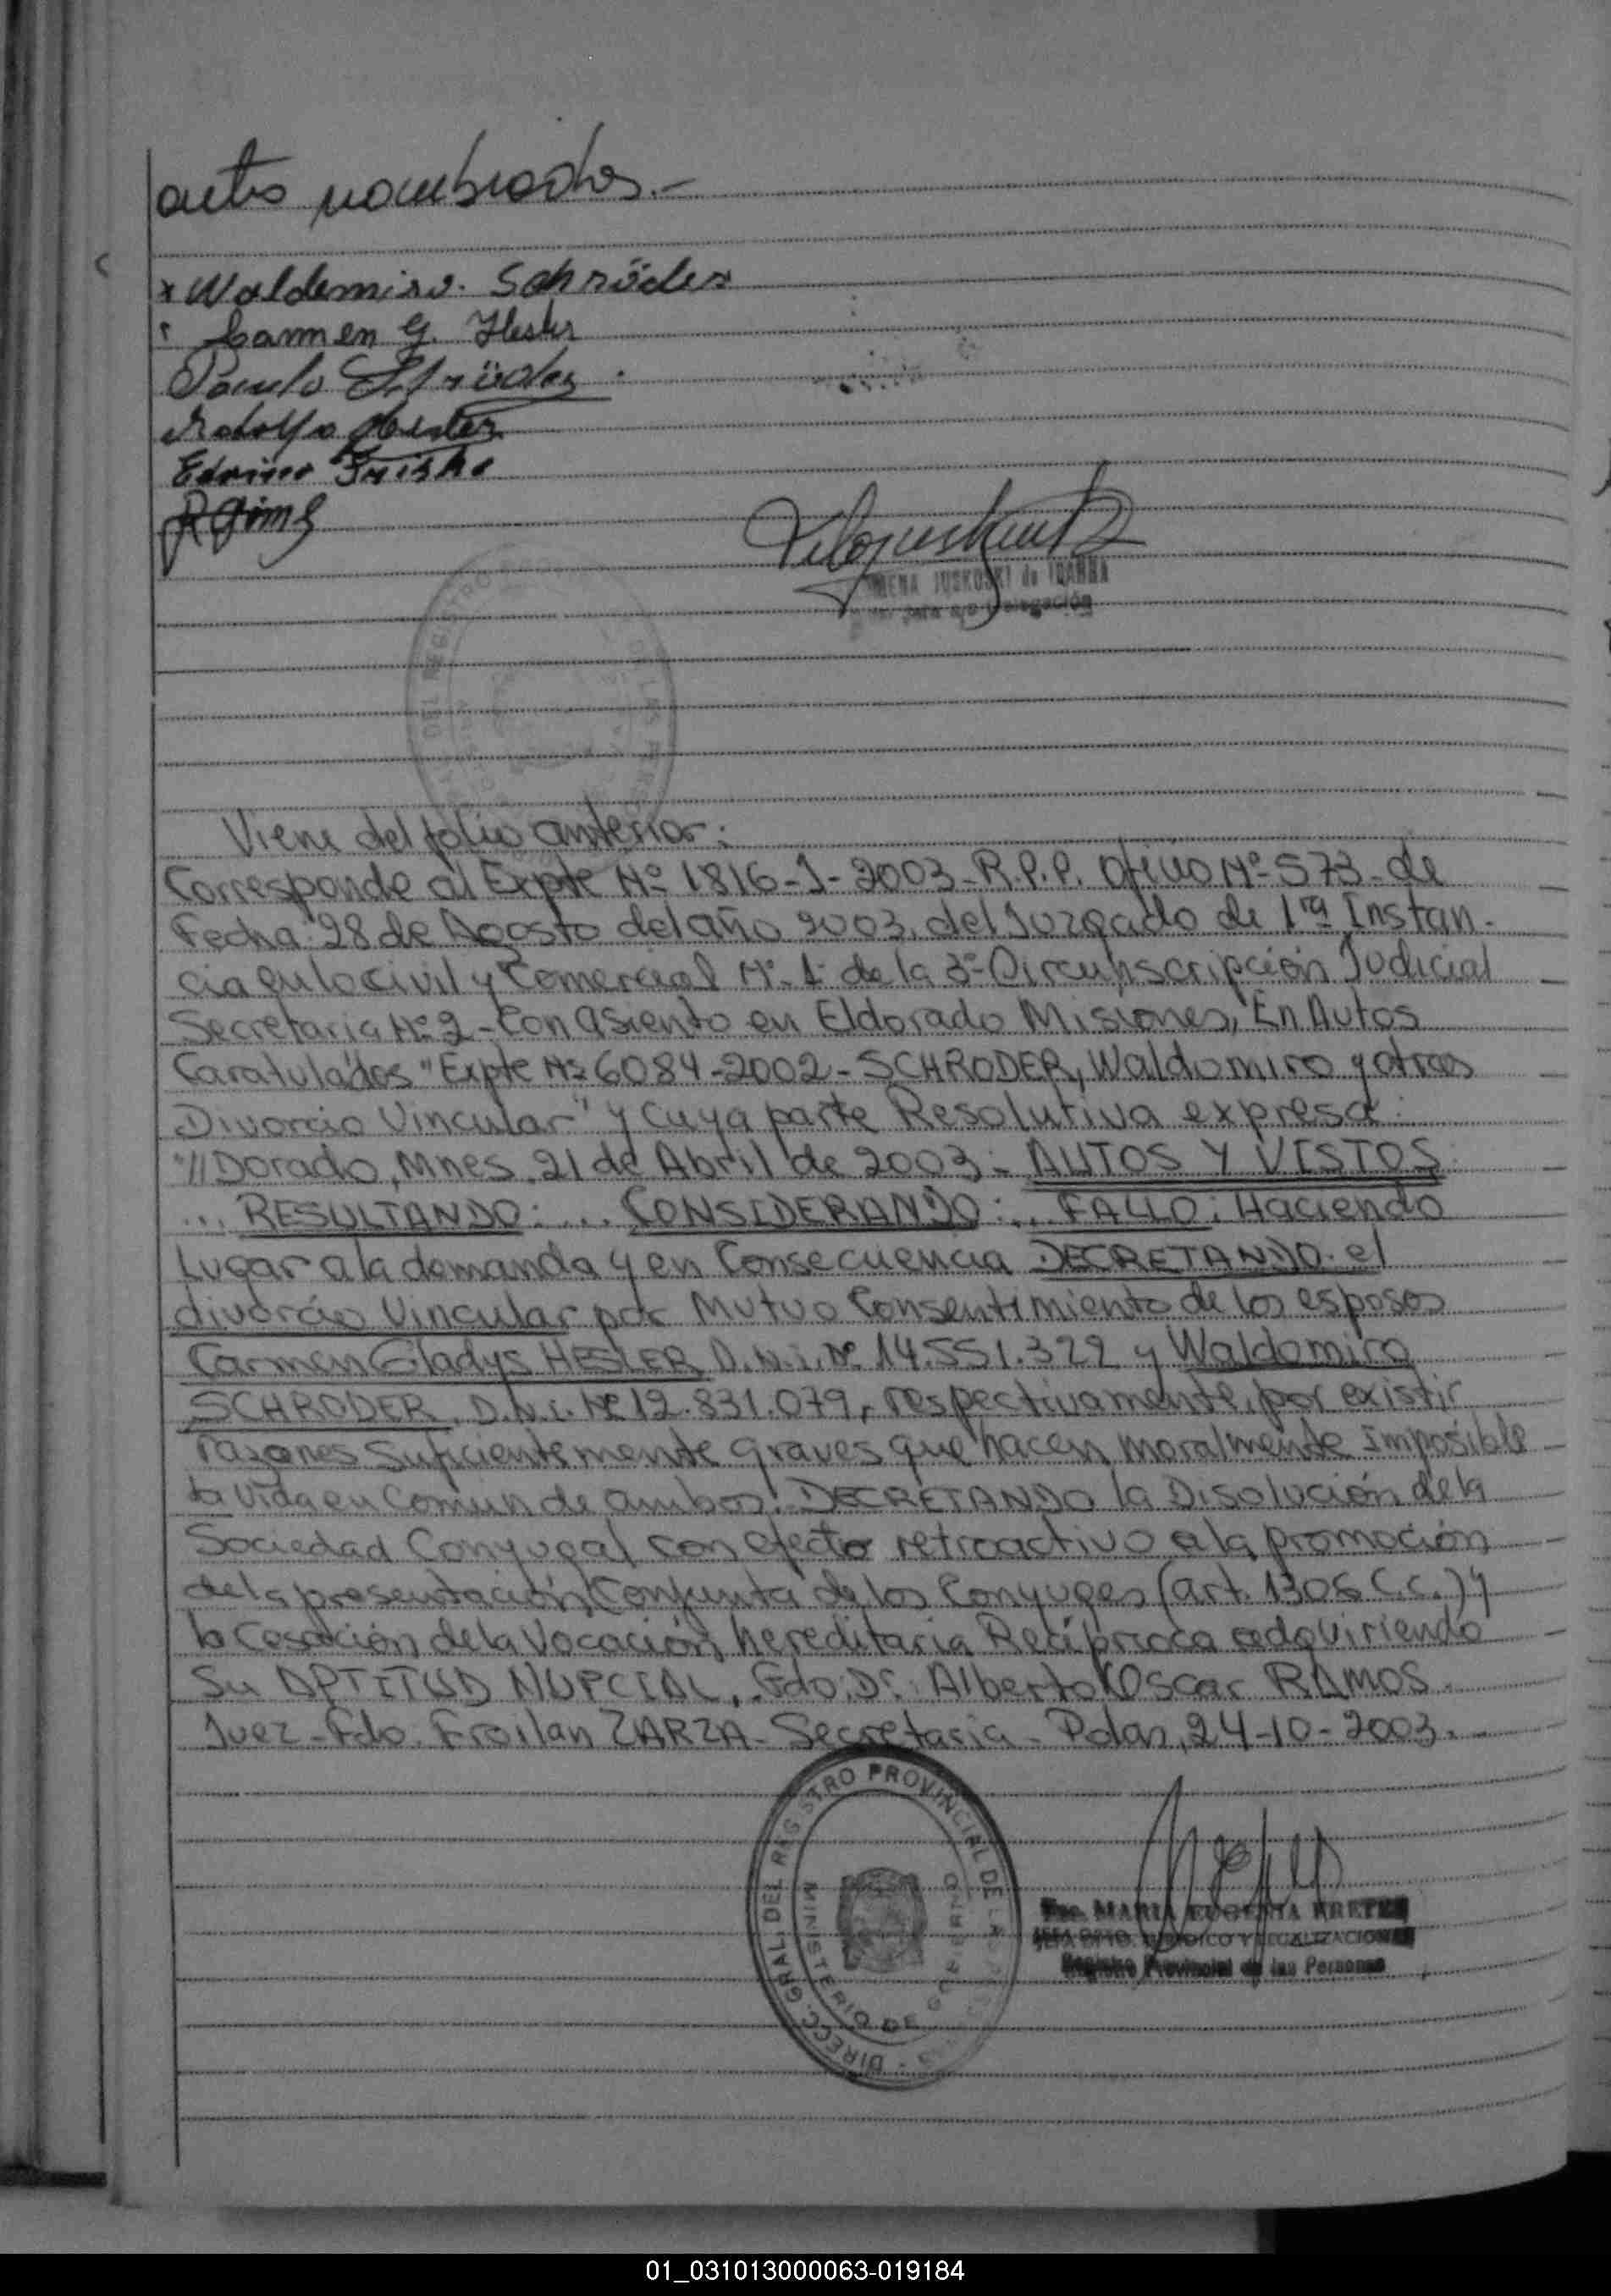 antes nombrados.-
x Waldemiro. Schröder
Carmen G. Hesler
Paulo Schröder.
Rodolfo Hesler
JUSKOSKI de
Viene del folio anterior:
Corresponde al Expte Nº 1816-J-2003-R.P.P. Oficio Nº 573- de
Fecha: 28 de Agosto del año 2003. del Juzgado de 1ra Instan-
cia en lo civil y Comercial Nº 1- de la 3º Circunscripción Judicial
Secretaria Nº 2- Con asiento en Eldorado Misiones, En Autos
Caratulados "Expte Nº 6084-2002-SCHRODER, Waldomiro y otras
Divorcio Vincular" y Cuya parte Resolutiva expresa:
"//Dorado, Mnes, 21 de Abril de 2003:- AUTOS Y VISTOS
... RESULTANDO: ... CONSIDERANDO: ... FALLO: Haciendo
Lugar a la demanda y en Consecuencia DECRETANDO el
divorcio Vincular por Mutuo Consentimiento de los esposos
Carmen Gladys HESLER D.N.I. Nº 14.551.322 y Waldomiro
SCHRODER, D.N.I. Nº 12.831.079, respectivamente, por existir
razones suficientemente graves que hacen moralmente Imposible
la vida en Comun de ambos. DECRETANDO la Disolución de la
Sociedad Conyugal con efecto retroactivo a la promoción
de la presentación Conjunta de los Conyuges (art. 1306 C.c.) y
la Cesación de la Vocación hereditaria Recíproca adquiriendo
Su APTITUD NUPCIAL. Fdo: Dr: Alberto Oscar RAMOS.
Juez- Fdo. Froilan ZARZA- Secretaria- Pdas, 24-10-2003.-
DIRECC. GRAL. DEL REGISTRO PROVINCIAL DE LAS
MINISTERIO DE GOBIERNO
MARIA EUGENIA
JURIDICO Y LEGALIZACIONES
Registro Provincial de las Personas
01_031013000063-019184